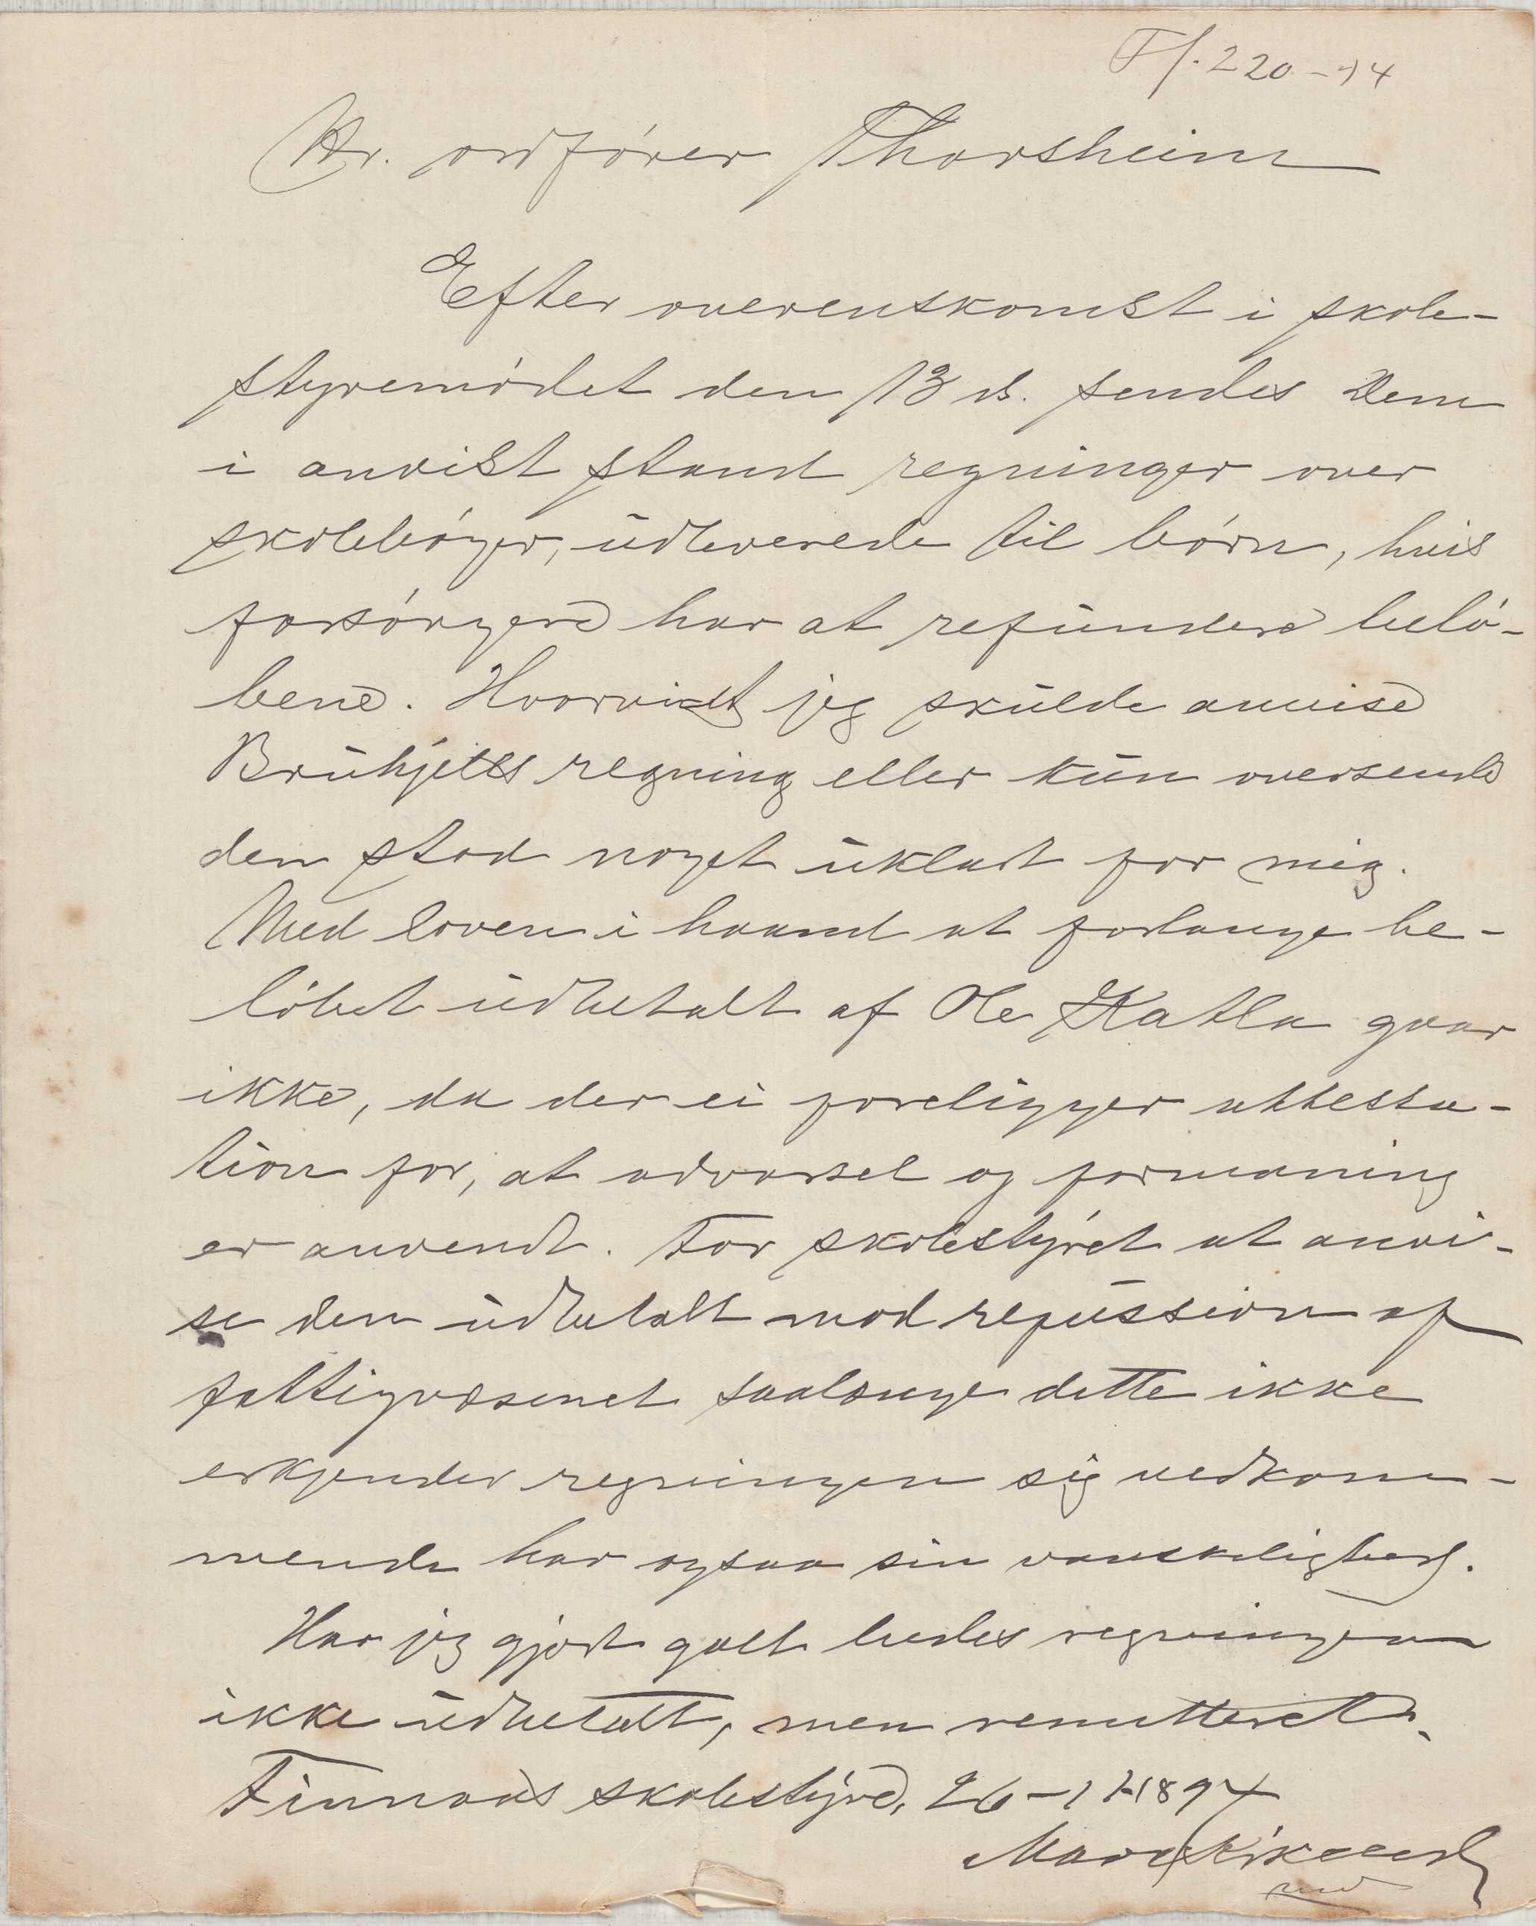 Ff. 220-94
Hr. ordfører Thorsheim
Efter overenskomst i skole-
styremødet den 13 ds. sendes Dem
i anvist stand regninger over
skolebøger, udleverede til børn, hvis
forsørgere har at refundere belø-
bene. Hvorvidt jeg skulde anvise
regning eller kun oversende
den stod noget uklart for mig.
Med loven i haand at forlange be-
løbet udbetalt af Ole Katla gaar
ikke, da der ei foreligger attesta-
tion for, at advarsel og formaning
er anvendt. For skolestyret at anvi-
se den udbetalt mod refussion af
fattigvæsenet saalænge dette ikke
erkjender regningen sig vedkom-
mende har ogsaa sin vanskelighed.
Har jeg gjort galt bedes regningen
ikke udbetalt, men remitteret.
Finnaas skolestyre, 26-11-1894